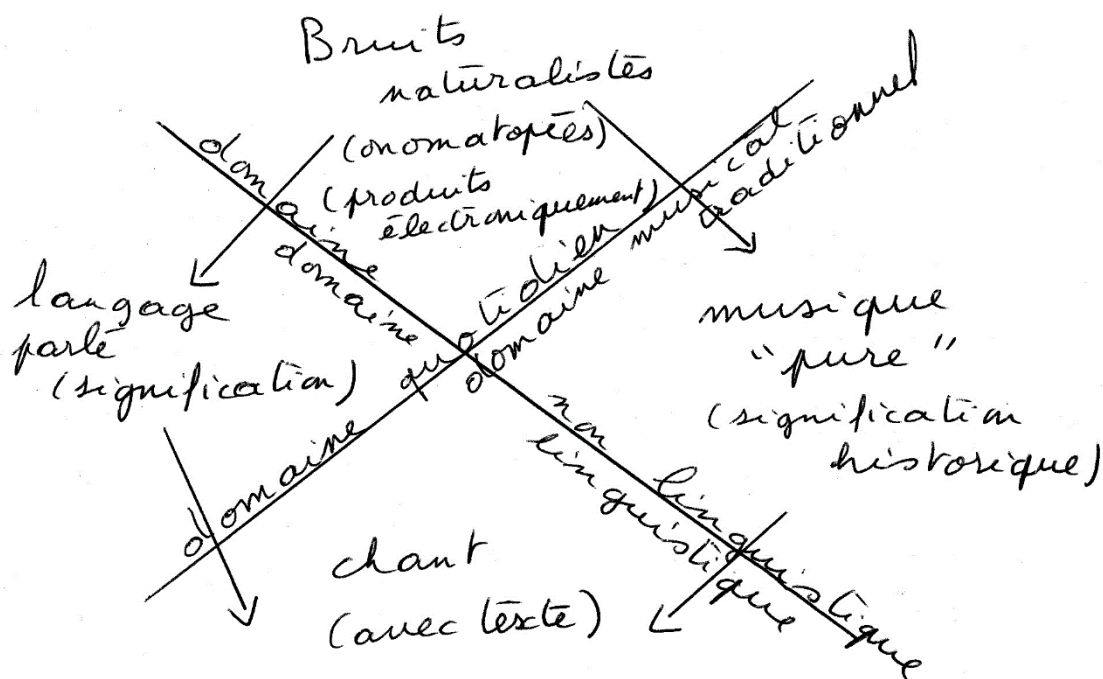 Bruits
naturalistes
(onomatopées)
(produits
électroniquement)
domaine non linguistique
domaine linguistique
domaine quotidien
domaine musical
traditionnel
langage
parlé
(signification)
musique
"pure"
(signification
historique)
chant
(avec texte)